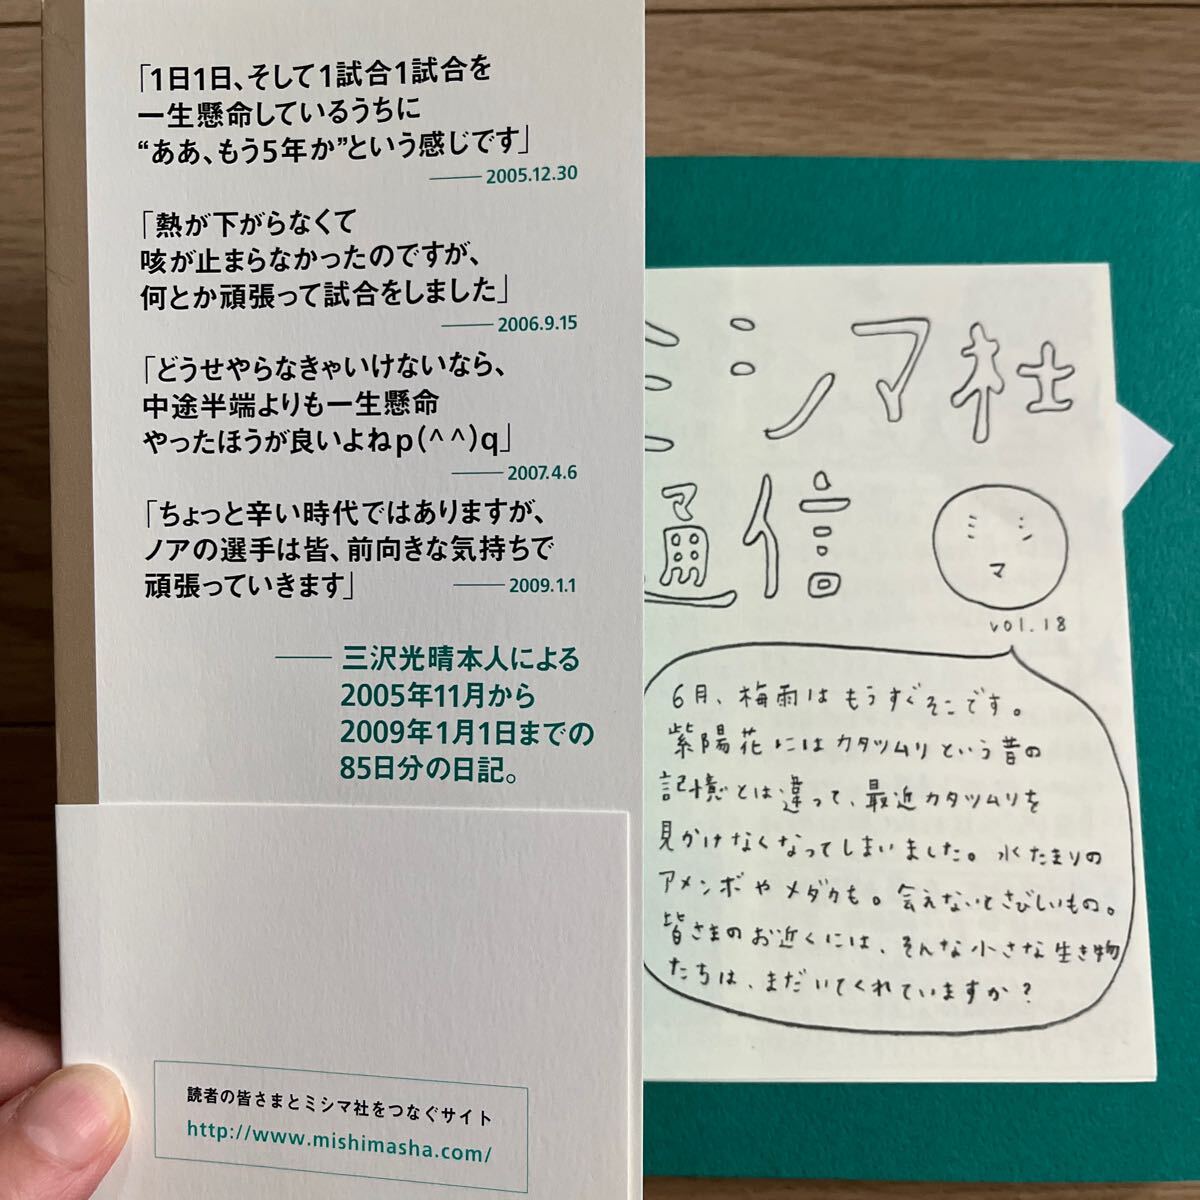 「1日1日、そして1試合1試合を
一生懸命しているうちに
“ああ、もう5年か”という感じです」
—— 2005.12.30
「熱が下がらなくて
咳が止まらなかったのですが、
何とか頑張って試合をしました」
—— 2006.9.15
「どうせやらなきゃいけないなら、
中途半端よりも一生懸命
やったほうが良いよねp(^ ^)q」
—— 2007.4.6
「ちょっと辛い時代ではありますが、
ノアの選手は皆、前向きな気持ちで
頑張っていきます」 —— 2009.1.1
—— 三沢光晴本人による
2005年11月から
2009年1月1日までの
85日分の日記。
読者の皆さまとミシマ社をつなぐサイト
http://www.mishimasha.com/
ミシマ社
通信
ミ シ
マ
vol.18
6月、梅雨はもうすぐそこです。
紫陽花にはカタツムリという昔の
記憶とは違って、最近カタツムリを
見かけなくなってしまいました。水たまりの
アメンボやメダカも。会えないとさびしいもの。
皆さまのお近くには、そんな小さな生き物
たちは、まだいてくれていますか？